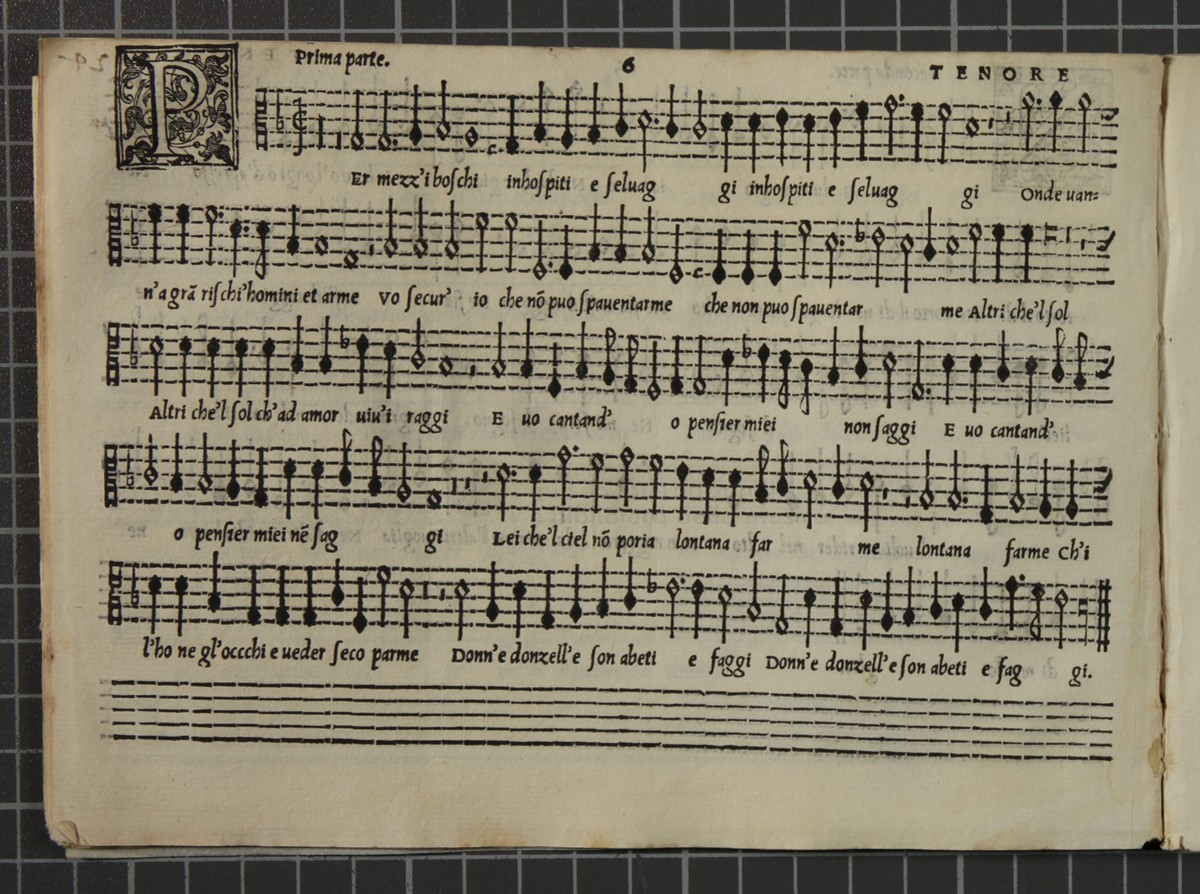 Prima parte. 6 TENORE
PEr mezz'i boſchi inhoſpiti e ſeluag gi inhoſpiti e ſeluag gi Onde uan=
n'a grã riſchi'homini et arme vo ſecur' io che nõ puo ſpauentarme che non puo ſpauentar me Altri che'l ſol
Altri che'l ſol ch'ad amor uiu'i raggi E uo cantand' o penſier miei non ſaggi E uo cantand'
o penſier miei nẽ ſag gi Lei che'l ciel nõ poria lontana far me lontana farme Ch'i
l'ho ne gl'occchi e ueder ſeco parme Donn'e donzell'e ſon abeti e faggi Donn'e donzell'e ſon abeti e fag gi.